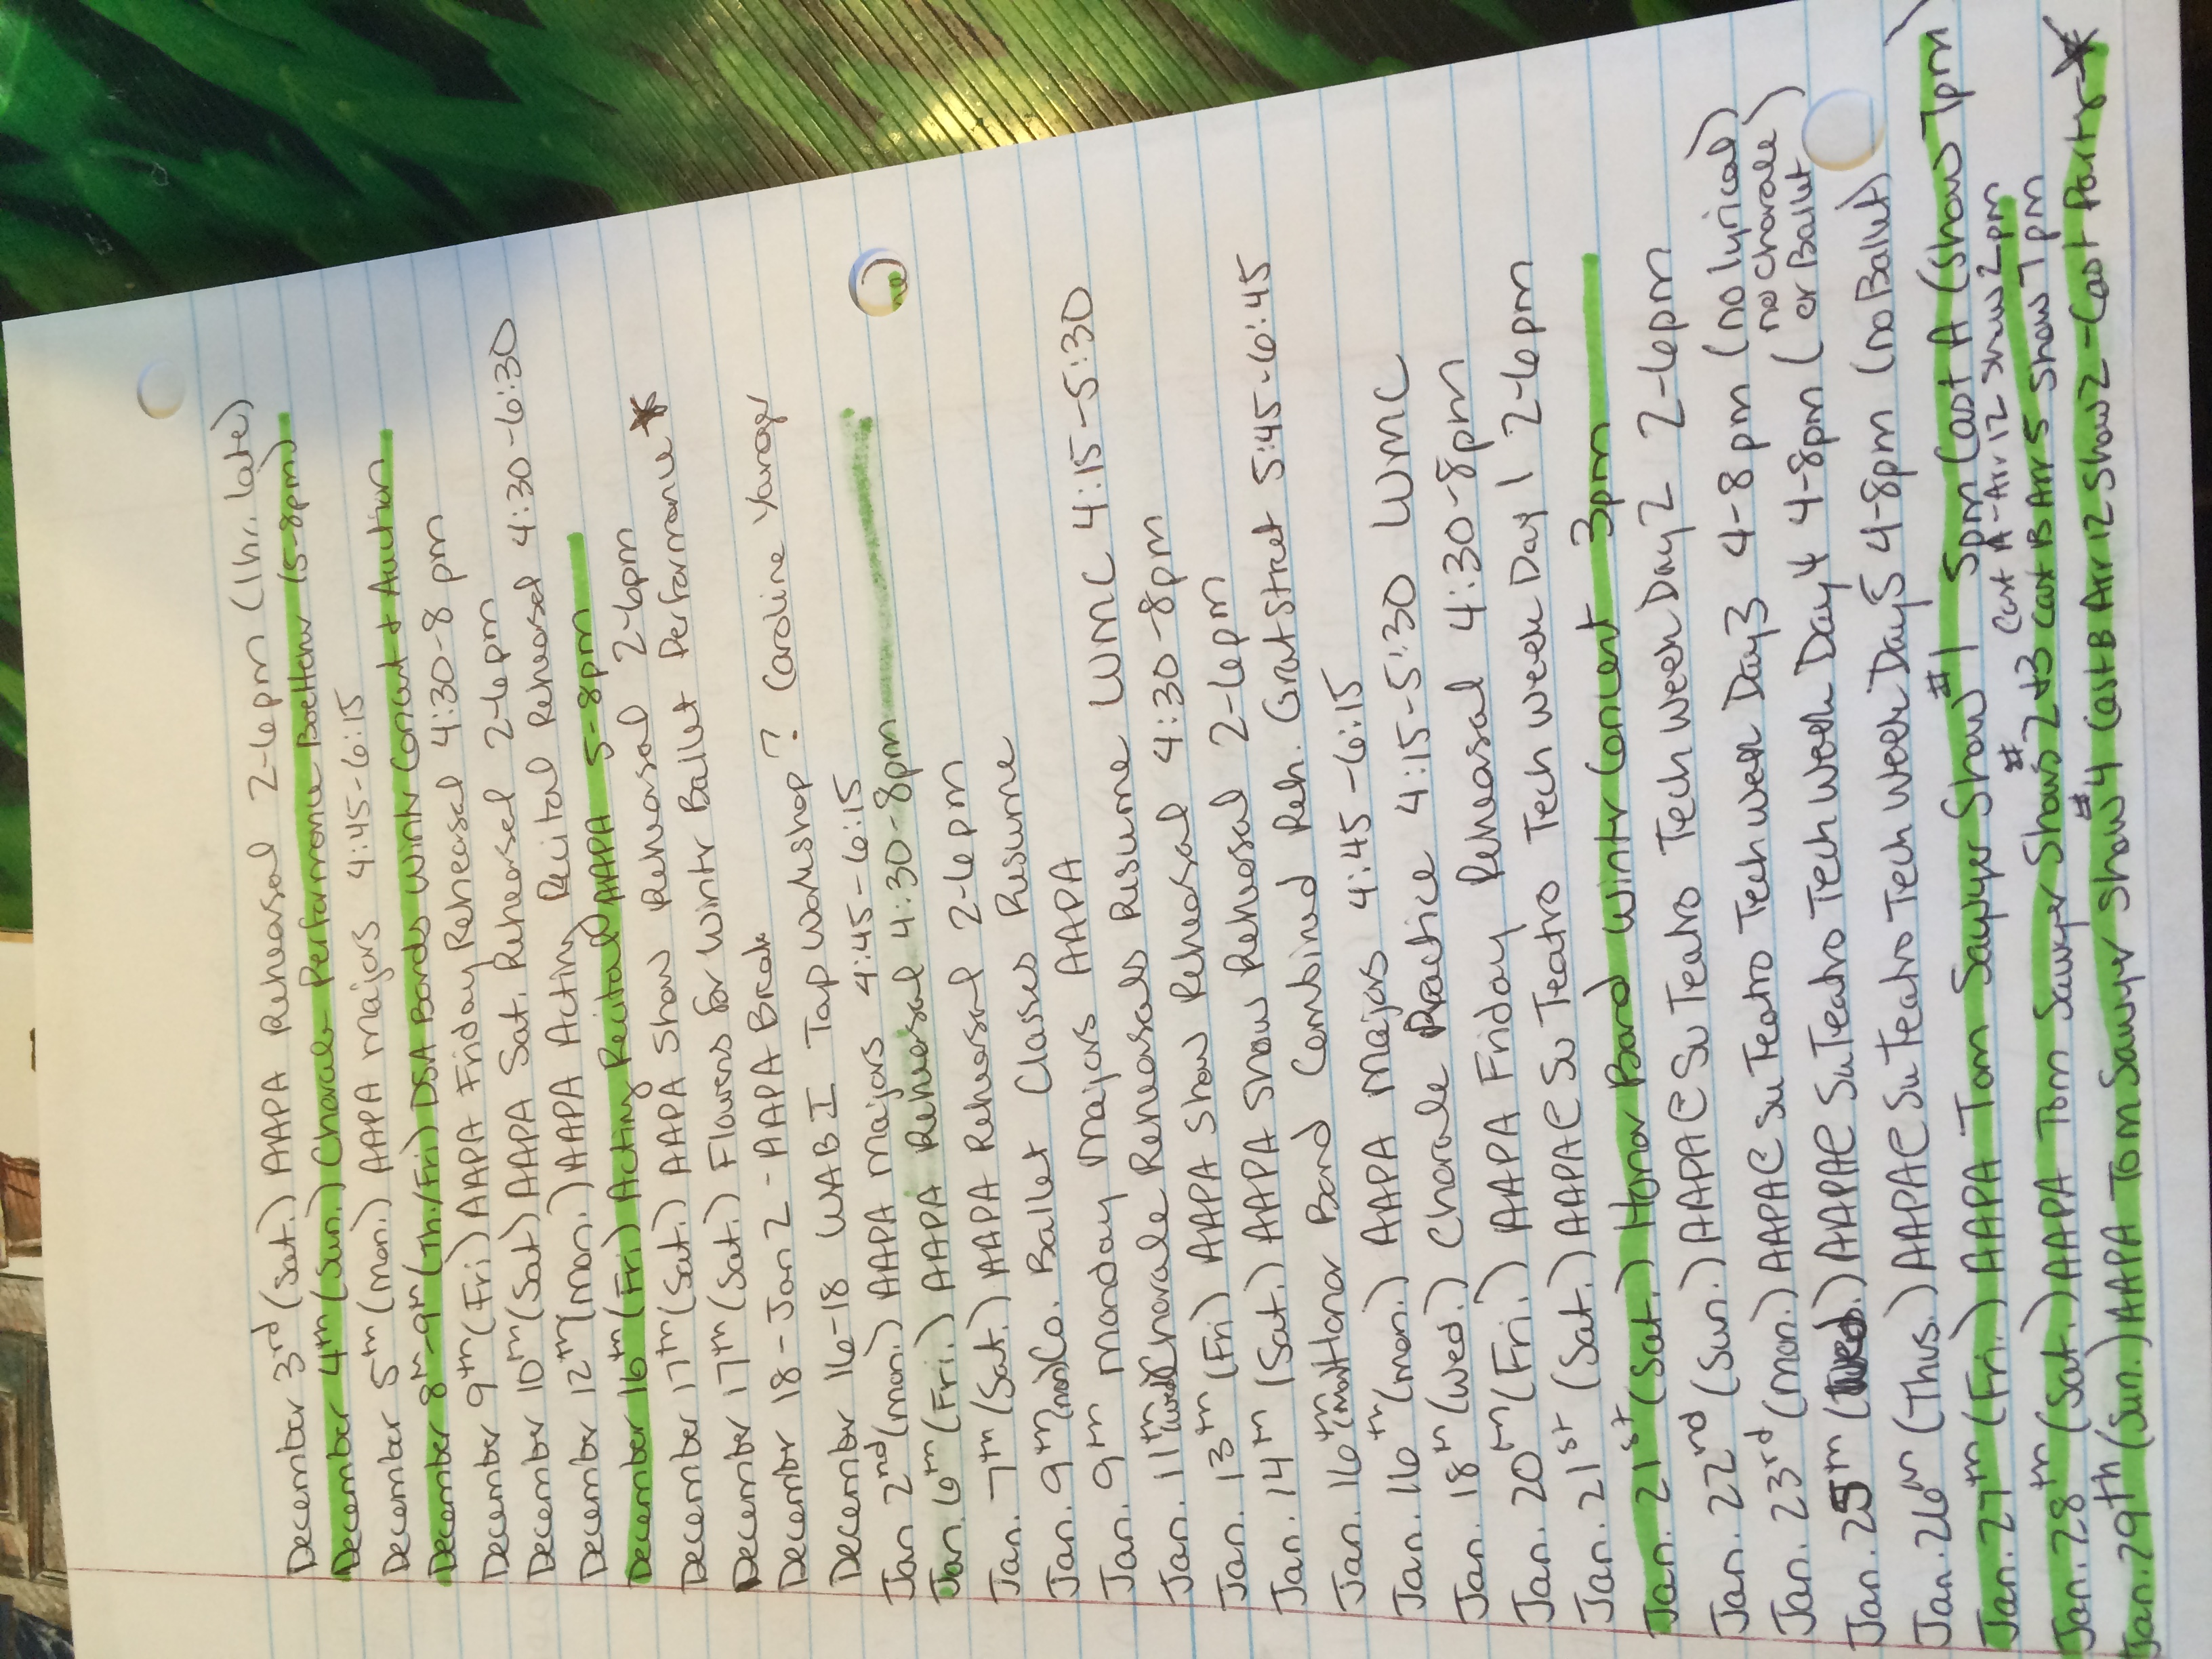 December 3rd (Sat.) AAPA Rehearsal 2-6pm (1hr. late)
December 4th (Sun.) Chorale Performance Boettcher (5-8pm)
December 5th (Mon.) AAPA Majors 4:45-6:15
December 8th-9th (Th./Fri) DSA Bands Wintr Concert & Auction
December 9th (Fri) AAPA Friday Rehearsal 4:30-8 pm
December 10th (Sat) AAPA Sat. Rehearsal 2-6pm
December 12th (Mon.) AAPA Acting Recital Rehearsal 4:30-6:30
December 16th (Fri) Acting Recital AAPA 5-8pm
December 17th (Sat.) AAPA Show Rehearsal 2-6pm
December 17th (Sat.) Flowers for Wintr Ballet Performance ★
December 18 - Jan 2 - AAPA Break
December 16-18 WAB I Tap Workshop? Caroline Yarager
Jan 2nd (Mon.) AAPA Majors 4:45-6:15
Jan. 6th (Fri.) AAPA Rehearsal 4:30-8pm
Jan. 7th (Sat.) AAPA Rehearsal 2-6pm
Jan. 9th (Mon) Co. Ballet Classes Resume
Jan. 9th Monday Majors AAPA
Jan. 11th (Wed) Chorale Rehearsals Resume WMC 4:15-5:30
Jan. 13th (Fri) AAPA Show Rehearsal 4:30-8pm
Jan. 14th (Sat.) AAPA Show Rehearsal 2-6pm
Jan. 16th (Mon) Honor Band Combined Reh. Grant Street 5:45-6:45
Jan. 16th (Mon.) AAPA Majors 4:45-6:15
Jan. 18th (Wed.) Chorale Practice 4:15-5:30 WMC
Jan. 20th (Fri.) AAPA Friday Rehearsal 4:30-8pm
Jan. 21st (Sat.) AAPA @ Su Teatro Tech Week Day 1 2-6pm
Jan. 21st (Sat.) Honor Band Wintr Concert 3pm
Jan. 22nd (Sun.) AAPA @ Su Teatro Tech Week Day 2 2-6pm
Jan. 23rd (Mon.) AAPA @ Su Teatro Tech Week Day 3 4-8pm (no lyrical)
Jan. 25th (Wed.) AAPA @ Su Teatro Tech Week Day 4 4-8pm (no Chorale or Ballet)
Jan. 26th (Thurs.) AAPA @ Su Teatro Tech Week Day 5 4-8pm (no Ballet)
Jan. 27th (Fri.) AAPA Tom Sawyer Show #1 5pm Cast A (Show 7pm)
Cast A - Arr 12 Show 2pm
Jan. 28th (Sat.) AAPA Tom Sawyer Shows #2 & 3 Cast B Arr 5 Show 7pm
Jan. 29th (Sun.) AAPA Tom Sawyer Show #4 Cast B Arr 12 Show 2 - Cast Party ★